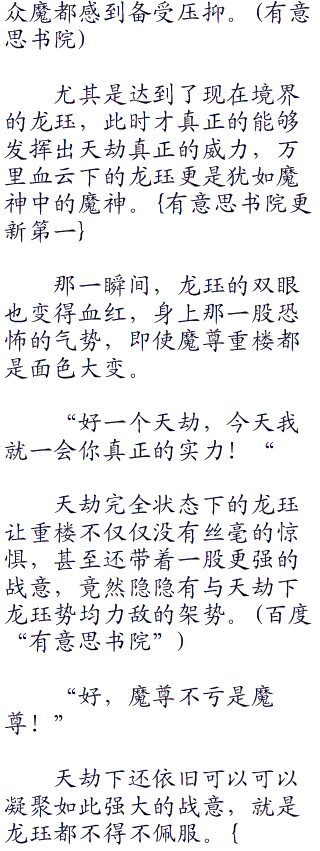 众魔都感到备受压抑。(有意
思书院)
尤其是达到了现在境界
的龙珏，此时才真正的能够
发挥出天劫真正的威力，万
里血云下的龙珏更是犹如魔
神中的魔神。{有意思书院更
新第一}
那一瞬间，龙珏的双眼
也变得血红，身上那一股恐
怖的气势，即使魔尊重楼都
是面色大变。
“好一个天劫，今天我
就一会你真正的实力！“
天劫完全状态下的龙珏
让重楼不仅仅没有丝毫的惊
惧，甚至还带着一股更强的
战意，竟然隐隐有与天劫下
龙珏势均力敌的架势。(百度
“有意思书院”)
“好，魔尊不亏是魔
尊！”
天劫下还依旧可以可以
凝聚如此强大的战意，就是
龙珏都不得不佩服。{